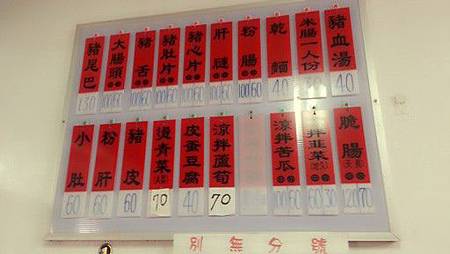 豬血湯 40
米腸一人份
乾麵 40
粉腸 100 60
肝腱 100 60
豬心片 100 60
豬肚片 100 60
豬舌 100 60
大腸頭 100 60
豬尾巴 130
脆腸 120 70
涼拌韭菜 60 30
涼拌苦瓜 100 60
涼拌蘆筍 70
皮蛋豆腐 40
燙青菜 70
豬皮 60
粉肝 60
小肚 60
別無分號